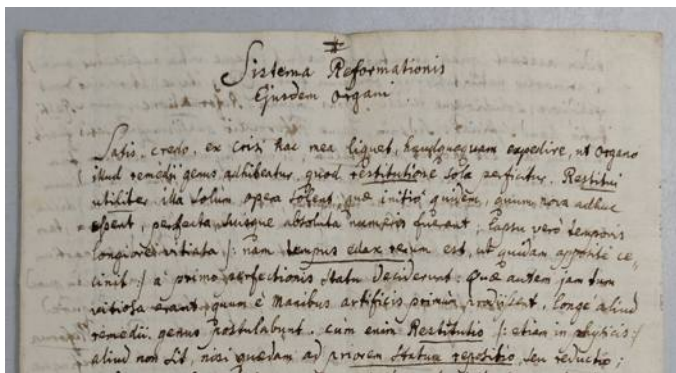 Sistema Reformationis
Ejusdem Organi
Satis, credo, ex crisi hac mea liquet, haudquaquam expedire, ut organo
illud remedii genus adhibeatur, quod restitutione sola perficitur. Restitui
utiliter illa solum opera solent, quae initio quidem, quum nova adhuc
essent, perfecta suisque absoluta numeris fuerant; lapsu verò temporis
longiore vitiata /: nam tempus edax rerum est, ut quidam appositè ce„
cinit :/ a primo perfectionis statu deciderunt. Quae autem jam tum
vitiosa erant, quum e manibus artificis primùm prodiissent, longè aliud
remedii genus postulabunt. cum enim Restitutio /: etiam in physicis :/
aliud non sit, nisi quaedam ad priorem statum repositio, seu reductio;